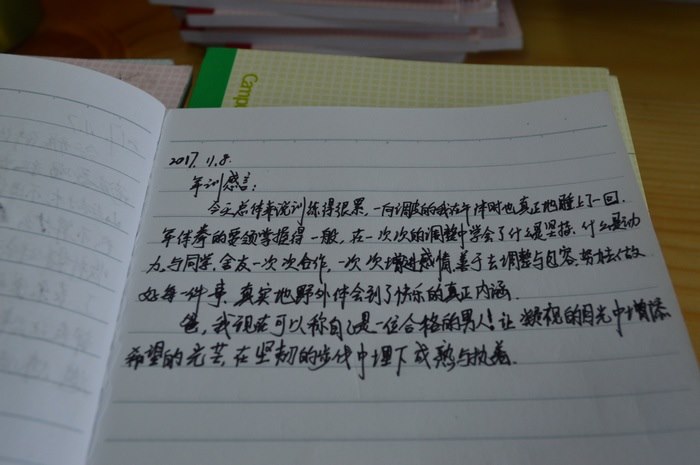 Camp
2017.11.8.
军训感言：
今天总体来说训练得很累，一向调皮的我在午休时也真正地睡上了一回，
军体拳的要领掌握得一般，在一次次的调整中学会了什么是坚持，什么是动
力，与同学，舍友一次次合作，一次次增进感情，善于去调整与包容，努力去做
好每一件事，真实地野外体会到了快乐的真正内涵．
爸，我现在可以称自己是一位合格的男人！让凝视的目光中增添
希望的光芒，在坚韧的步伐中埋下成熟与执着．